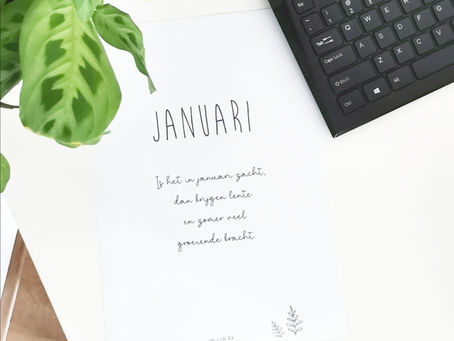 JANUARI
Is het in januari zacht,
dan krijgen lente
en zomer veel
groeiende kracht.
Tab
Caps Lock
Shift
Ctrl
Q
W
E
A
S
D
Z
X
Alt